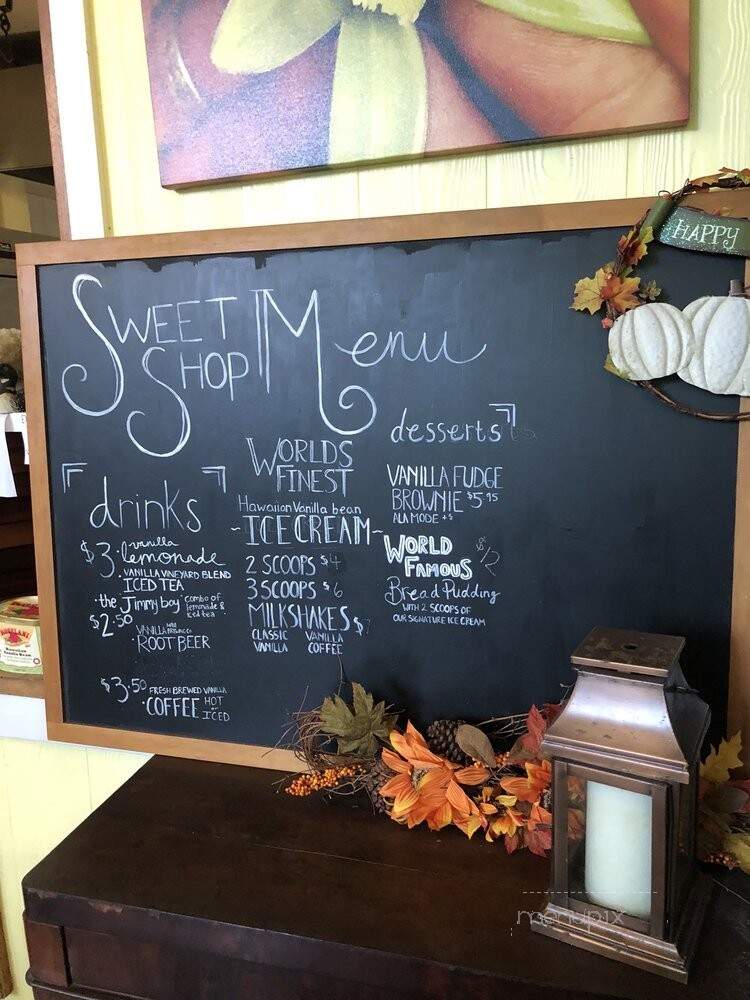 HAPPY
SWEET
SHOP
MENU
drinks
$3. vanilla
lemonade
VANILLA VINEYARD BLEND
ICED TEA
the Jimmy boy combo of
lemonade &
iced tea
$2.50
ROOT BEER
$3.50 FRESH BREWED VANILLA
COFFEE HOT
ICED
WORLDS
FINEST
Hawaiian Vanilla bean
ICE CREAM
2 SCOOPS $4
3 SCOOPS $6
MILKSHAKES $7
CLASSIC VANILLA
VANILLA COFFEE
desserts
VANILLA FUDGE
BROWNIE $5.95
ALA MODE
WORLD
FAMOUS
Bread Pudding
WITH 2 SCOOPS OF
OUR SIGNATURE ICE CREAM
menupix